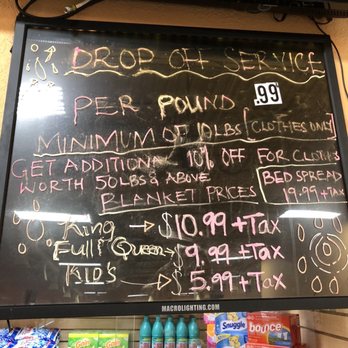 DROP OFF SERVICE
PER POUND .99
MINIMUM OF 10LBS (CLOTHES ONLY)
GET ADDITIONAL 10% OFF FOR CLOTHES
WORTH 50LBS & ABOVE
BED SPREAD
19.99 +TAX
BLANKET PRICES
King → $10.99 + Tax
Full/Queen → $9.99 ± Tax
KID'S → $5.99 + Tax
MACROLIGHTING.COM
Snuggle
bounce